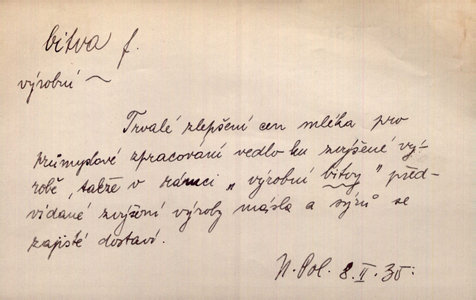 bitva f.
výrobní ~
Trvalé zlepšení cen mléka pro
průmyslové zpracování vedlo ku zvýšené vý-
robě, takže v rámci „výrobní bitvy" před-
vídané zvýšení výroby másla a sýrů se
zajisté dostaví.
N. Pol. 8. II. 35: